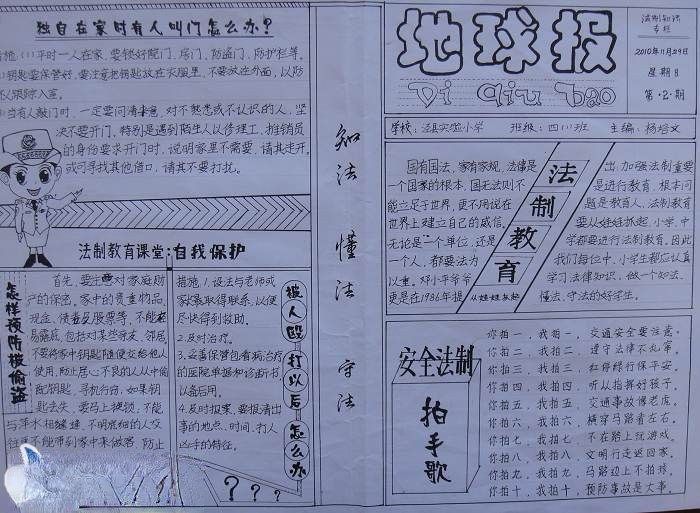 独自在家时有人叫门怎么办?
措施:(1)平时一人在家,要锁好院门、居门、防盗门、防护栏等。
(2)钥匙要保管好,要注意把钥匙放在衣服里,不要放在外面,以防
坏人跟踪入室。
(3)当有人敲门时,一定要问清来意,对不熟悉或不认识的人,坚
决不要开门,特别是遇到陌生人以修理工、推销员
的身份要求开门时,说明家里不需要,请其走开。
或可寻找其他借口,请其不要打扰。
法制教育课堂:自我保护
怎样预防被偷盗
首先,要注意对家庭财
产的保密,家中的贵重物品、
现金、债券及股票等,不能
易露底,包括对某些亲友、邻居。
不要将家中钥匙随便交给他人
使用,防止居心不良的人从中偷
配钥匙,寻机行窃,如果钥
匙丢失,要马上换锁,不能
与萍水相逢,不明底细的人交
不能带到家中来做客,防止
措施:1.设法与老师或
家长取得联系,以便
尽快得到救助。
2.及时治疗。
3.妥善保管包看病治疗
的医院单据和诊断书
以备后用。
4.及时报案,要报清出
事的地点、时间、打人
凶手的特征。
被人殴打以后怎么办
? ? ?
知法 懂法 守法
地球报
Di Qiu bao
法制知识
专栏
2010年11月29日
星期日
第·2·期
学校:法县实验小学 班级:四(1)班 主编:杨培文
法制教育
从娃娃抓起
国有国法,家有家规,法律是
一个国家的根本,国无法则不
能立足于世界,更不用说在
世界上建立自己的威信。
无论是一个单位,还是
一个人,都要法为
以重。邓小平爷爷
更是在1986年提
出:加强法制重要
是进行教育,根本问
题是教育人。法制教育
要从娃娃抓起,小学,中
学都要进行法制教育。因此
我们每位中、小学生都应认真
学习法律知识,做一个知法、
懂法、守法的好学生。
安全法制
拍手歌
你拍一,我拍一,交通安全要注意。
你拍二,我拍二,遵守法律不乱窜。
你拍三,我拍三,红停绿行保平安。
你拍四,我拍四,听从指挥好孩子。
你拍五,我拍五,交通事故像老虎。
你拍六,我拍六,横穿马路看左右。
你拍七,我拍七,不在路上玩游戏。
你拍八,我拍八,文明行走返回家。
你拍九,我拍九,马路边上不拍球。
你拍十,我拍十,预防事故是大事。